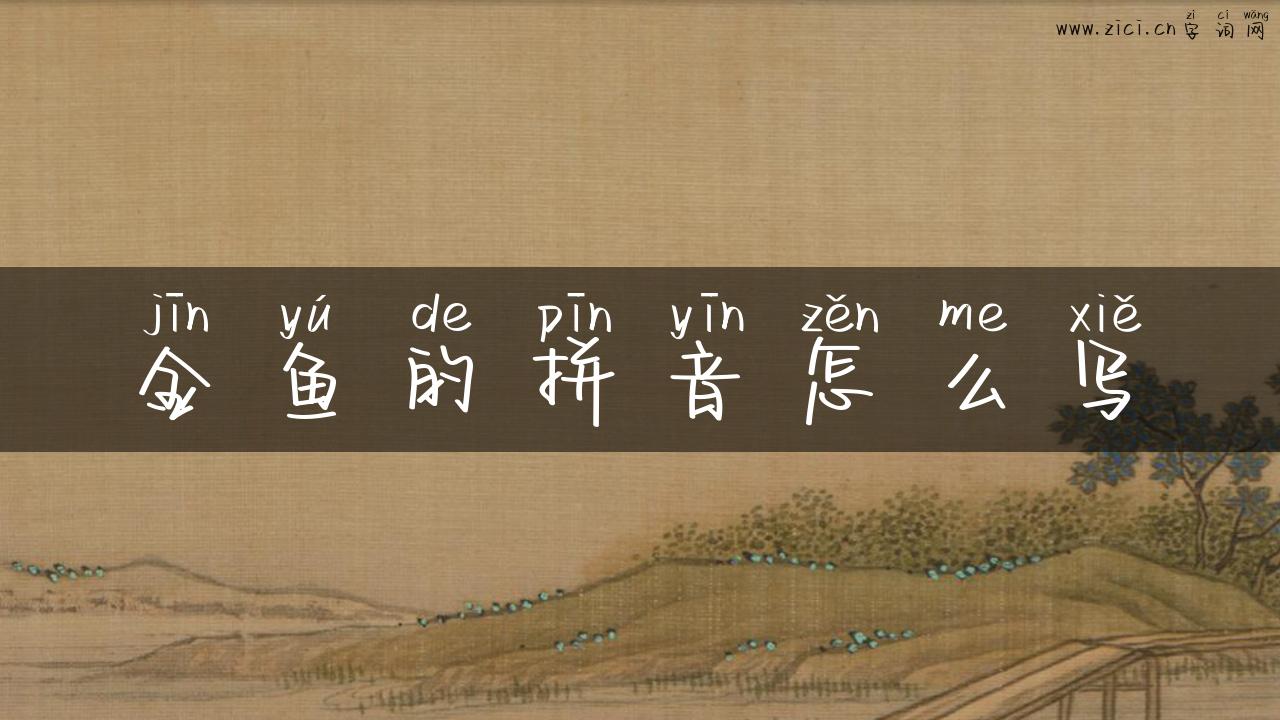 zì cí wǎng
www.zici.cn字词网
jīn yú de pīn yīn zěn me xiě
金鱼的拼音怎么写